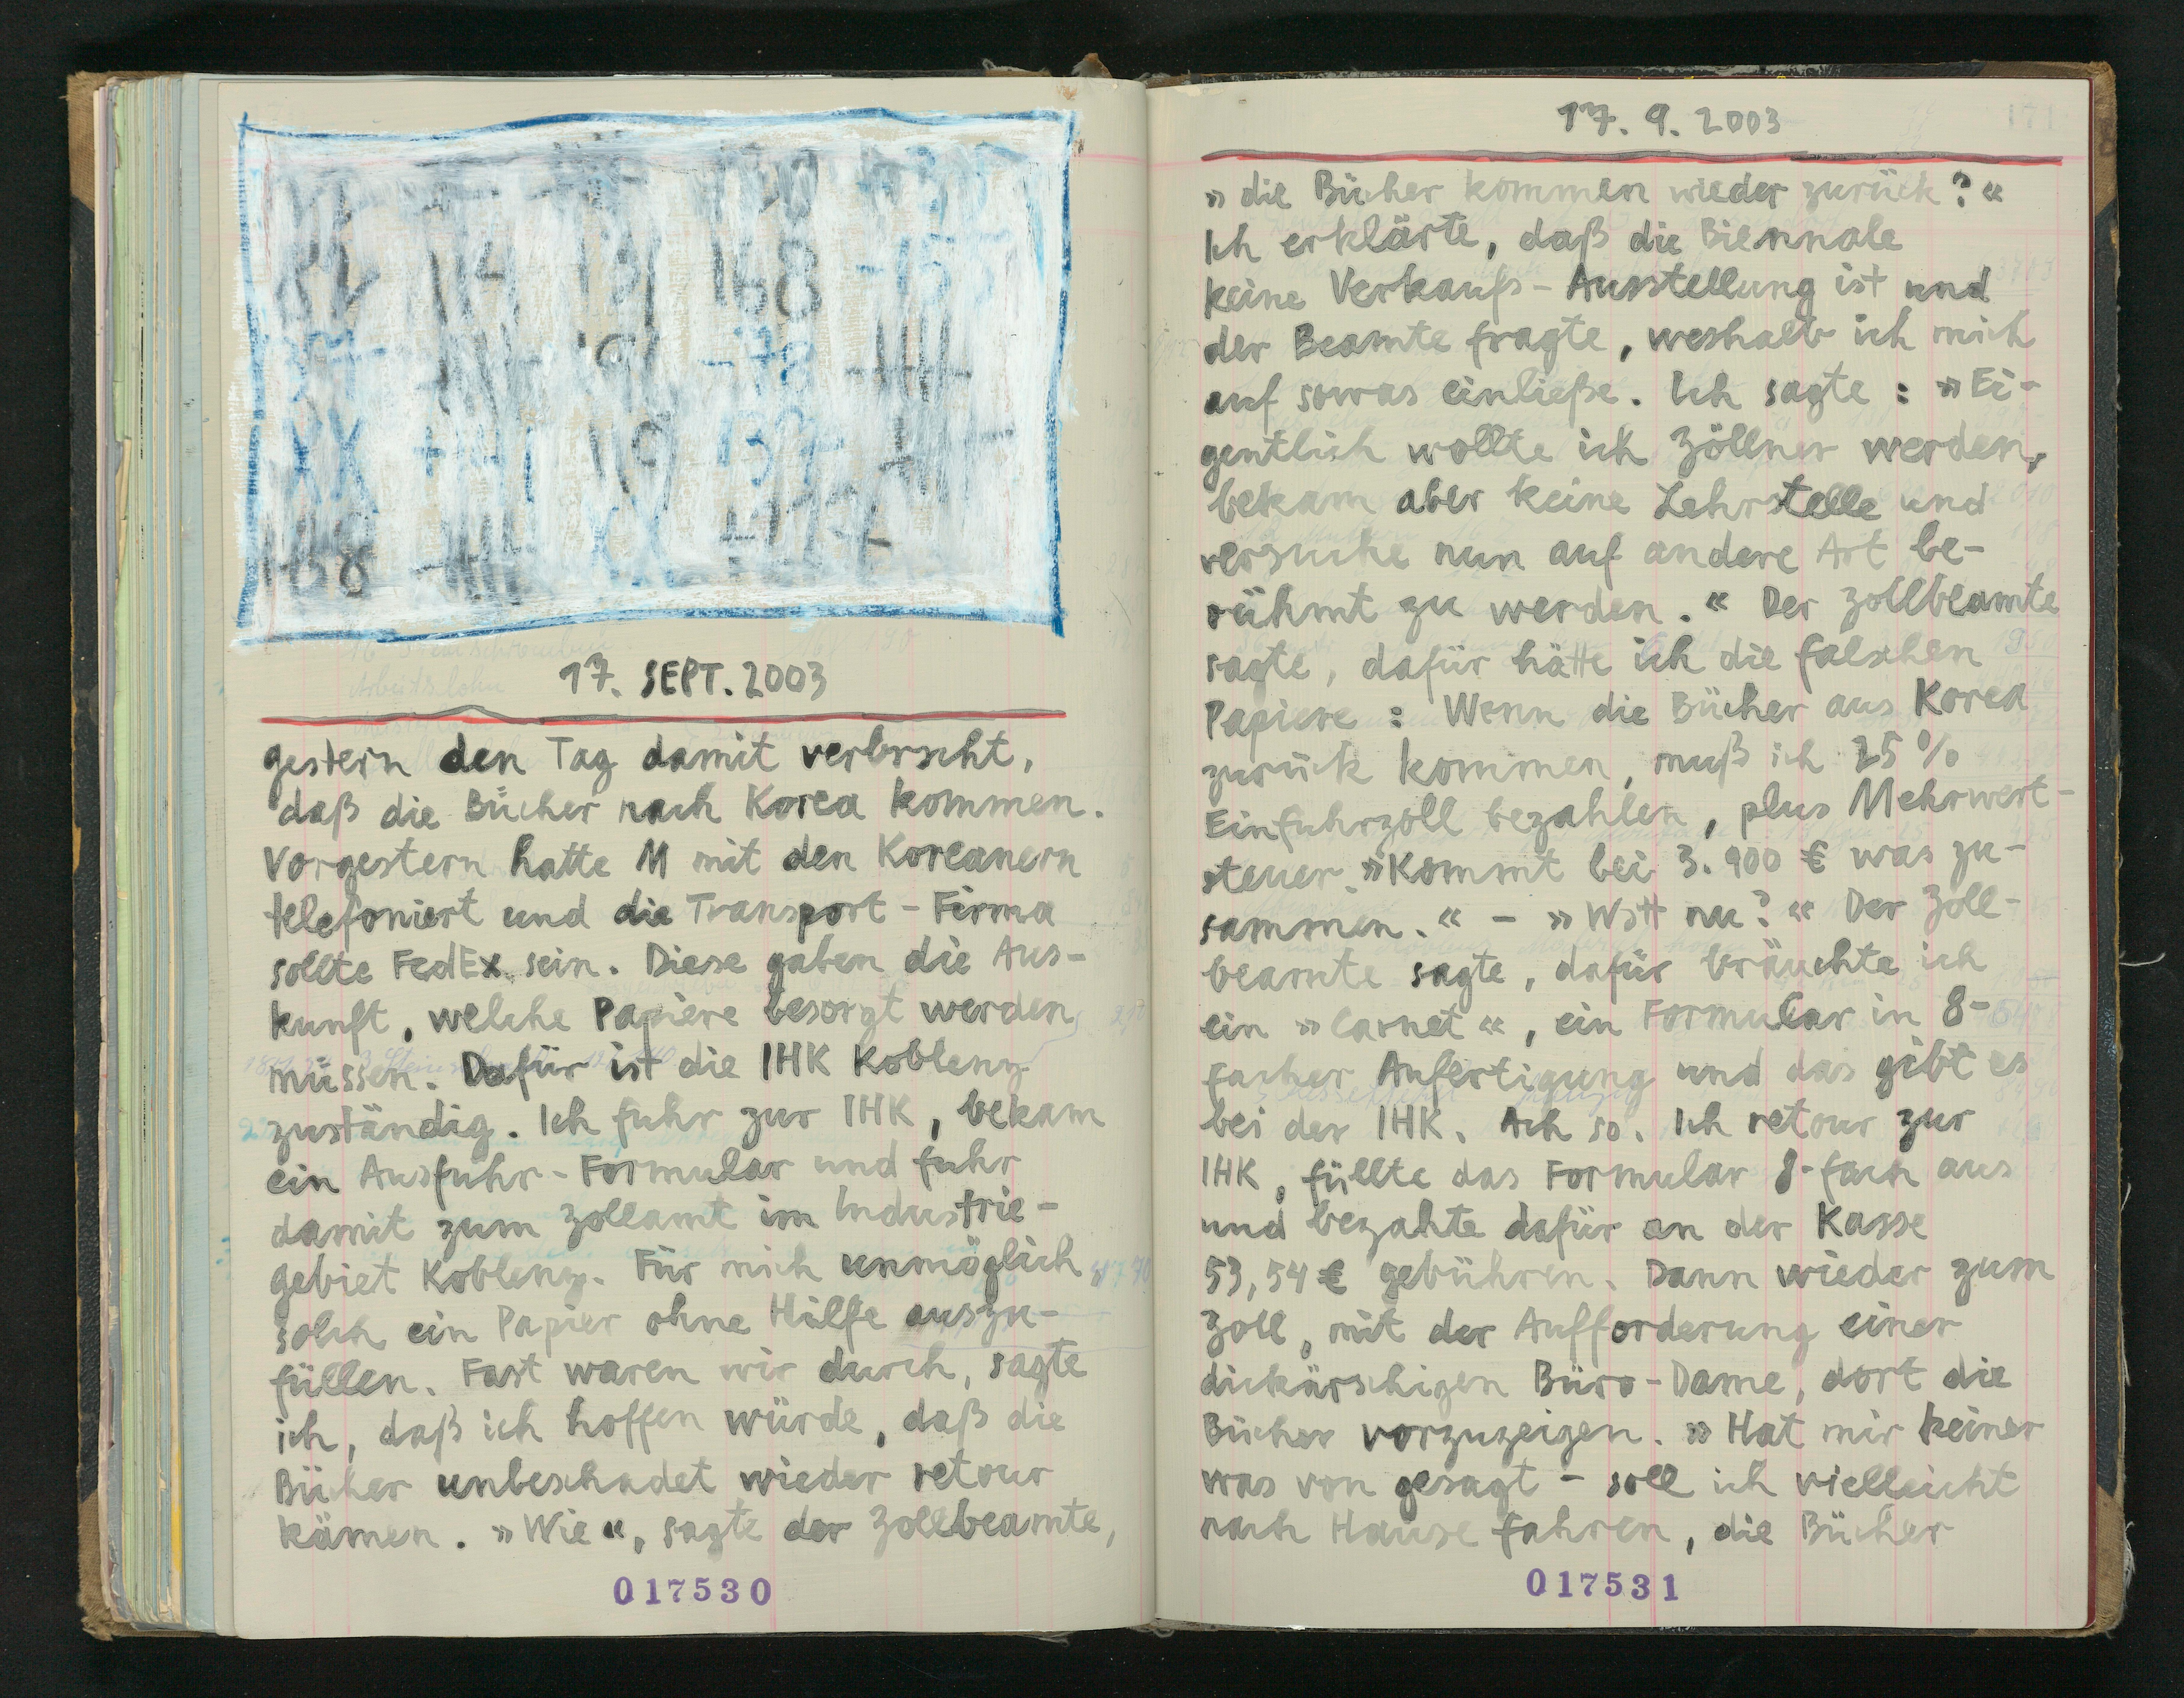 17. SEPT. 2003
gestern den Tag damit verbracht,
daß die Bücher nach Korea kommen.
Vorgestern hatte M mit den Koreanern
telefoniert und die Transport-Firma
sollte FedEx sein. Diese gaben die Aus-
kunft, welche Papiere besorgt werden
müssen. Dafür ist die IHK Koblenz
zuständig. Ich fuhr zur IHK, bekam
ein Ausfuhr-Formular und fuhr
damit zum Zollamt im Industrie-
gebiet Koblenz. Für mich unmöglich
solch ein Papier ohne Hilfe auszu-
füllen. Fast waren wir durch, sagte
ich, daß ich hoffen würde, daß die
Bücher unbeschadet wieder retour
kämen. »Wie«, sagte der Zollbeamte,
017530
17. 9. 2003
»die Bücher kommen wieder zurück?«
Ich erklärte, daß die Biennale
keine Verkaufs-Ausstellung ist und
der Beamte fragte, weshalb ich mich
auf sowas einließe. Ich sagte: »Ei-
gentlich wollte ich Zöllner werden,
bekam aber keine Lehrstelle und
versuche nun auf andere Art be-
rühmt zu werden.« Der Zollbeamte
sagte, dafür hätte ich die falschen
Papiere: Wenn die Bücher aus Korea
zurück kommen, muß ich 25%
Einfuhrzoll bezahlen, plus Mehrwert-
steuer. »Kommt bei 3.900 € was zu-
sammen.« - »Watt nu?« Der Zoll-
beamte sagte, dafür bräuchte ich
ein »Carnet«, ein Formular in 8-
facher Anfertigung und das gibt es
bei der IHK. Ach so. Ich retour zur
IHK, füllte das Formular 8-fach aus
und bezahte dafür an der Kasse
53,54 € gebühren. Dann wieder zum
Zoll, mit der Aufforderung einer
dickärschigen Büro-Dame, dort die
Bücher vorzuzeigen. »Hat mir keiner
was von gesagt - soll ich vielleicht
nach Hause fahren, die Bücher
017531